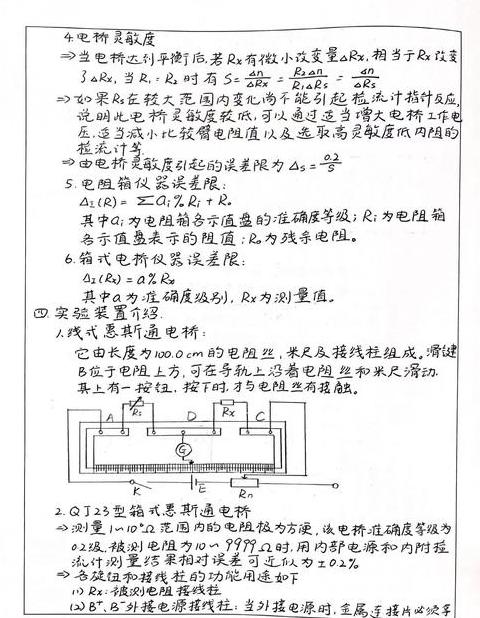 4.电桥灵敏度
⇒当电桥达到平衡后,若Rx有微小改变量△Rx,相当于Rx改变
了△Rx,当R₁=R₂时有 S=△n/△Rx=R₂△n/R₁△Rs=△n/△Rs
⇒如果Rs在较大范围内变化尚不能引起检流计指针反应,
说明此电桥灵敏度较低,可以通过适当增大电桥工作电
压,适当减小比较臂电阻值以及选取高灵敏度低内阻的
检流计等.
⇒由电桥灵敏度引起的误差限为△s=0.2/S
5.电阻箱仪器误差限:
△I(R)=∑ai%Ri+R₀
其中ai为电阻箱各示值盘的准确度等级;Ri为电阻箱
各示值盘表示的阻值;R₀为残余电阻。
6.箱式电桥仪器误差限:
△I(Rx)=a%Rx
其中a为准确度级别,Rx为测量值。
四.实验装置介绍.
1.线式惠斯通电桥:
它由长度为100.0cm的电阻丝,米尺及接线柱组成。滑键
B位于电阻上方,可在导轨上沿着电阻丝和米尺滑动.
其上有一按钮,按下时,才与电阻丝有接触。
A Rs D Rx C
G
K E Rn
2.QJ23型箱式惠斯通电桥
⇒测量1~10⁶Ω范围内的电阻极为方便,该电桥准确度等级为
0.2级.被测电阻为10~9999Ω时,用内部电源和内附检
流计测量结果相对误差可近似为±0.2%
⇒各旋钮和接线柱的功能用途如下
(1)Rx:被测电阻接线柱
(2)B⁺、B⁻外接电源接线柱:当外接电源时,金属连接片必须